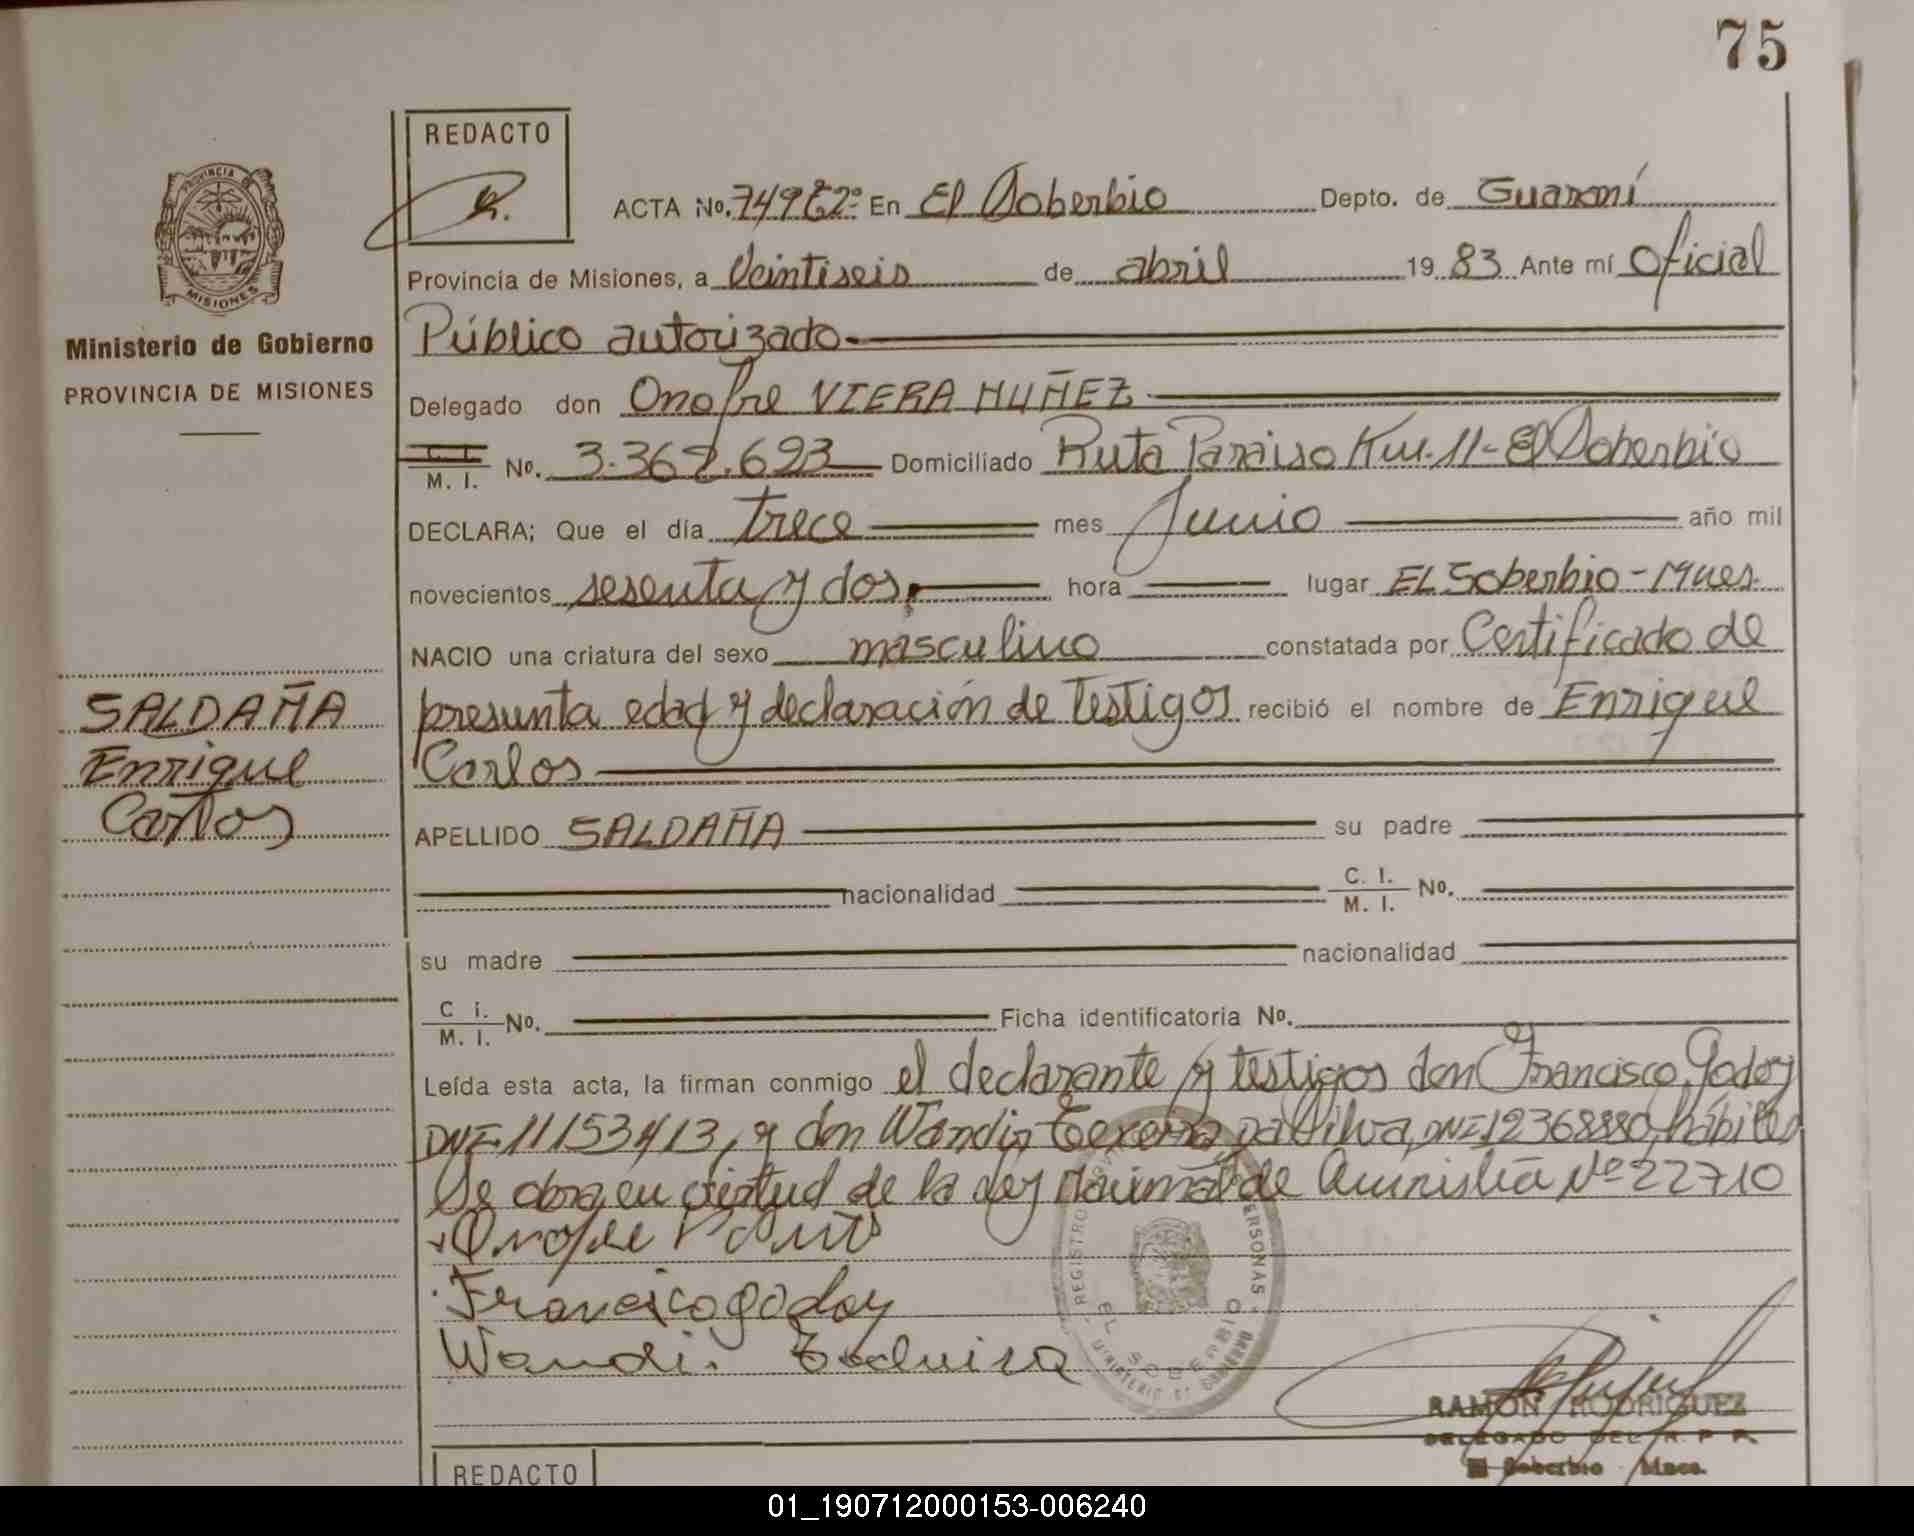 75
REDACTO
PROVINCIA
MISIONES
ACTA No. 749 En El Soberbio Depto. de Guaraní
Provincia de Misiones, a Veintiseis de abril 19 83 Ante mí Oficial
Ministerio de Gobierno
PROVINCIA DE MISIONES
Público autorizado.
Delegado don Onofre VIERA NUÑEZ
M. I. No. 3.362.693 Domiciliado Ruta Paraiso Km. 11 - El Soberbio
DECLARA; Que el día trece mes Junio año mil
novecientos sesenta y dos, hora lugar EL Soberbio - Mnes.
NACIO una criatura del sexo masculino constatada por Certificado de
SALDAÑA
Enrique
Carlos
presunta edad y declaración de testigos recibió el nombre de Enrique
Carlos
APELLIDO SALDAÑA su padre
nacionalidad C. I. M. I. No.
su madre nacionalidad
C I. M. I. No. Ficha identificatoria No.
Leída esta acta, la firman conmigo el declarante y testigos don Francisco Godoy
DNI 11153413, y don Wandir Da Silva, DNI 12368880, hábiles
Se obra en virtud de la Ley Nacional de Amnistía Nº 22710
Francisco godoy
Wandi.
REGISTRO PERSONAS
EL SOBERBIO
MINISTERIO DE GOBIERNO
RAMON RODRIGUEZ
DELEGADO DEL R. P. P.
El Soberbio Mnes.
REDACTO
01_190712000153-006240